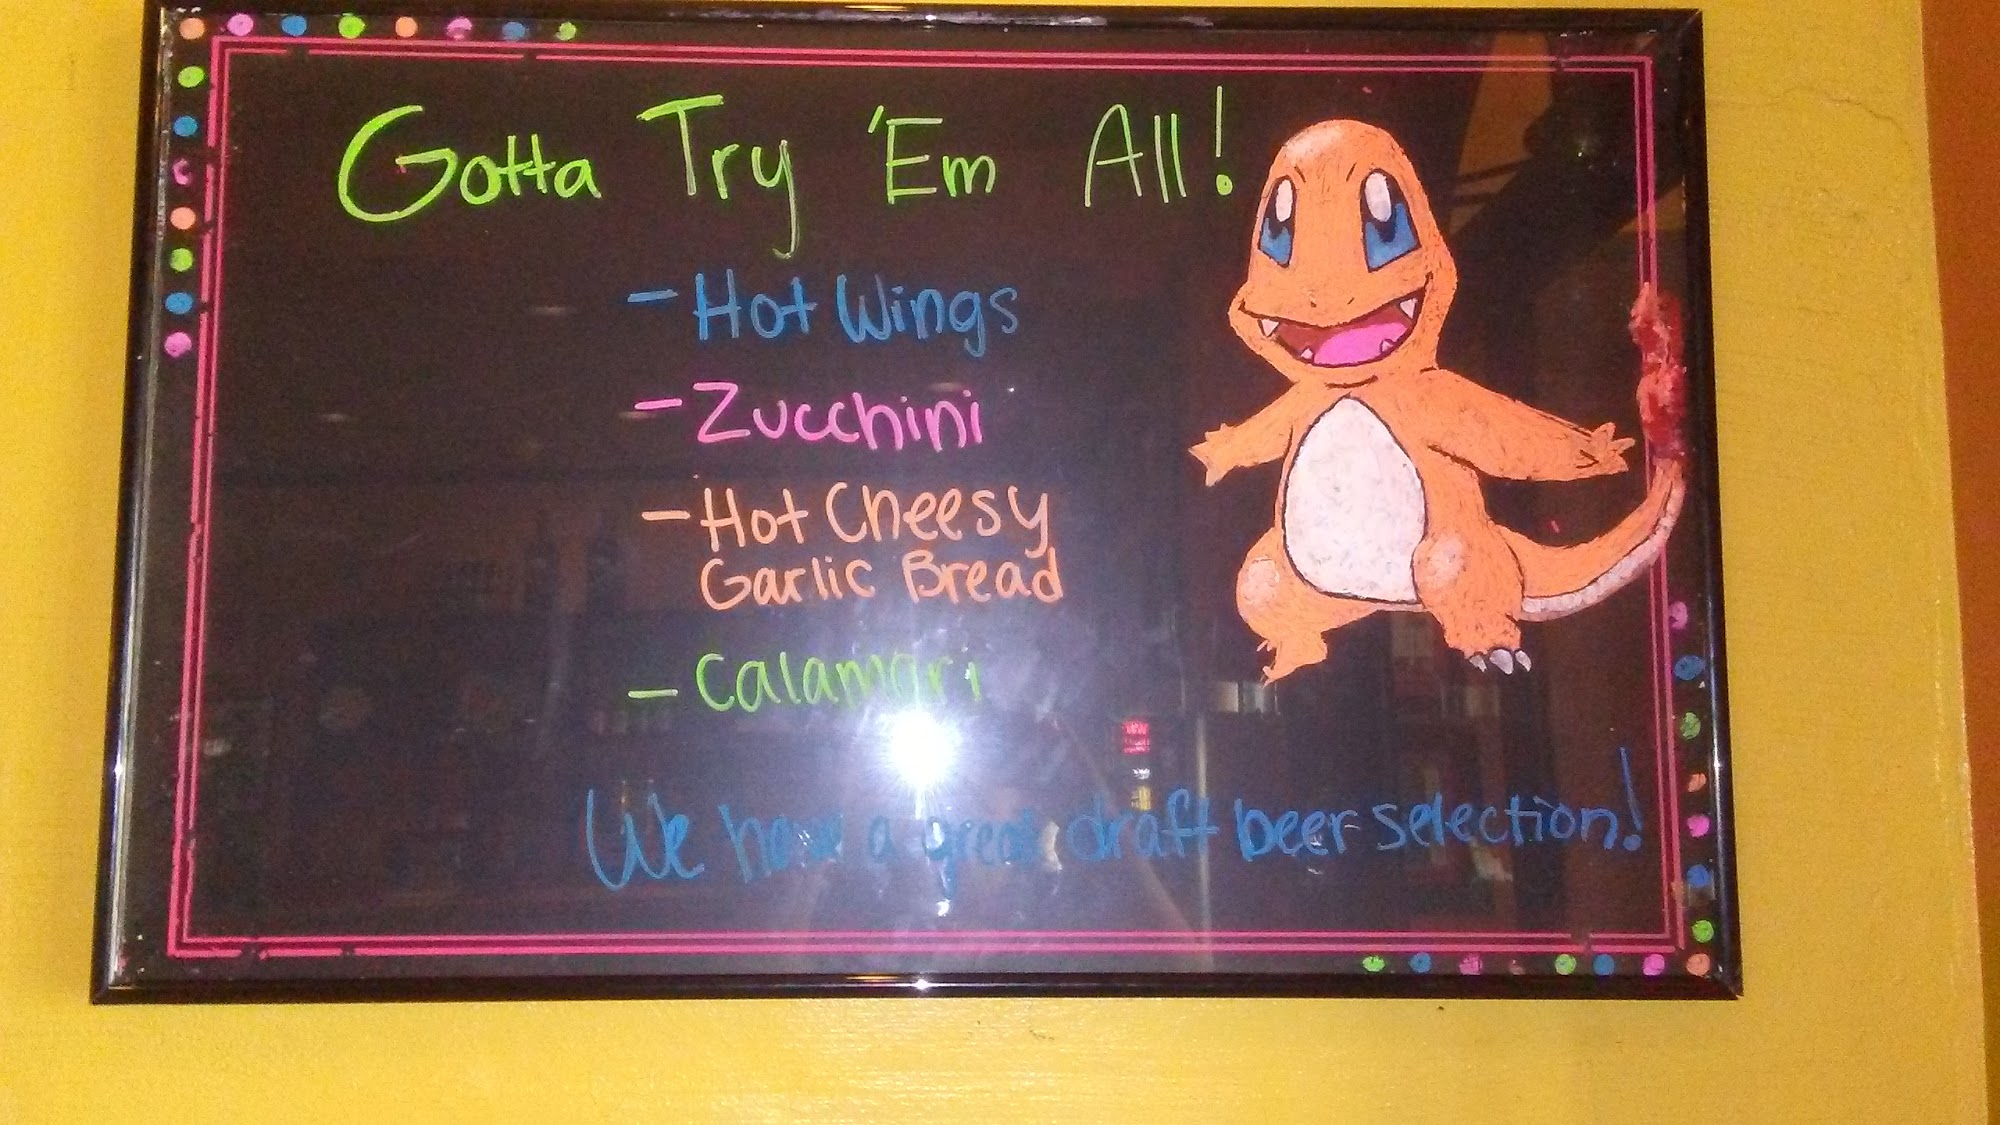 Gotta Try 'Em All!
- Hot Wings
- Zucchini
- Hot Cheesy
Garlic Bread
- Calamari
We have a great draft beer selection!